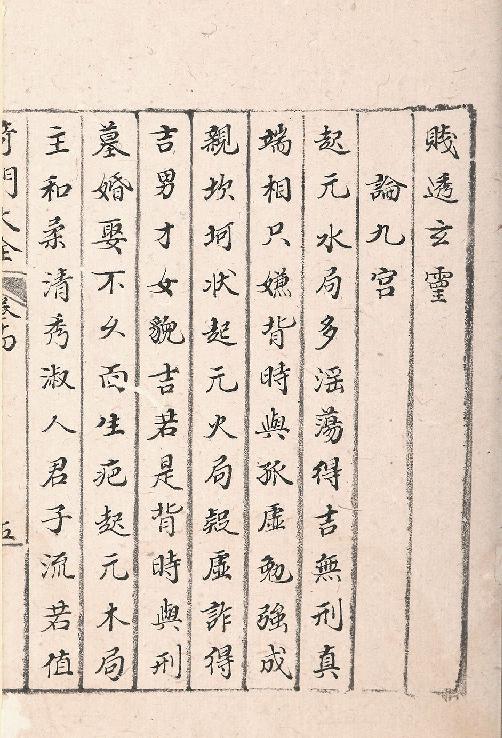 賤透玄靈
論九宮
起元水局多滛蕩得吉無刑真
端相只嫌背時與孤虛勉強成
親坎坷狀起元火局虛詐得
吉男才女貌吉若是背時與刑
墓婚娶不久面生疤起元木局
主和柔清秀淑人君子流若值
奇門大全
五